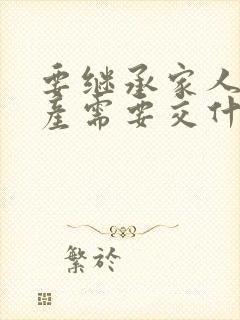 要继承家人
产需要交什
繁於